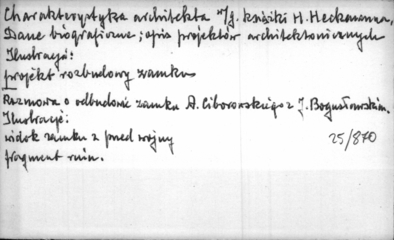 Charakterystyka architekta w/g. książki H. Heckmanna,
Dane biograficzne; opis projektów architektonicznych
Ilustracje:
projekt rozbudowy zamku
Rozmowa o odbudowie zamku A. Ciborowskiego z J. Bogusławskim.
Ilustracje:
widok zamku z przed wojny
fragment ruin.
25/870